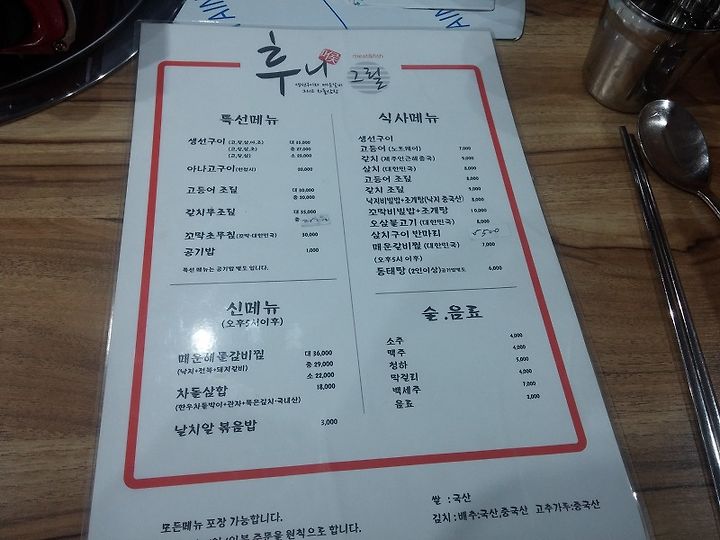 후니
meat&fish
그릴
특선메뉴
생선구이 (고,갈,삼,아,조) 대 35,000
(고,갈,삼,조) 중 27,000
(고,갈,삼) 소 20,000
아나고구이
고등어 조림 대 30,000
갈치무조림 대 35,000
중
꼬막초무침 (꼬막-대한민국) 30,000
공기밥 1,000
특선 메뉴는 공기밥 별도 입니다.
식사메뉴
생선구이
고등어 (노르웨이) 7,000
갈치 9,000
삼치 (대한민국) 8,000
고등어 조림 8,000
갈치 조림 9,000
낙지비빔밥+조개탕(낙지 중국산) 8,000
꼬막비빔밥+조개탕 10,000
오삼불고기 (대한민국) 8,000
삼치구이 반마리 5500
매운갈비찜 (대한민국) 7,000
(오후5시 이후)
동태탕 (2인이상)공기밥별도 6,000
신메뉴
(오후5시이후)
매운해물갈비찜 대 36,000
(낙지+전복+돼지갈비) 중 29,000
소 22,000
차돌삼합 18,000
(한우차돌박이+관자+묵은김치-국내산)
날치알 볶음밥 3,000
술.음료
소주 4,000
맥주 4,000
청하 5,000
막걸리 4,000
백세주 7,000
음료 2,000
모든메뉴 포장 가능합니다.
주문을 원칙으로 합니다.
쌀 : 국산
김치 : 배추:국산,중국산 고추가루:중국산